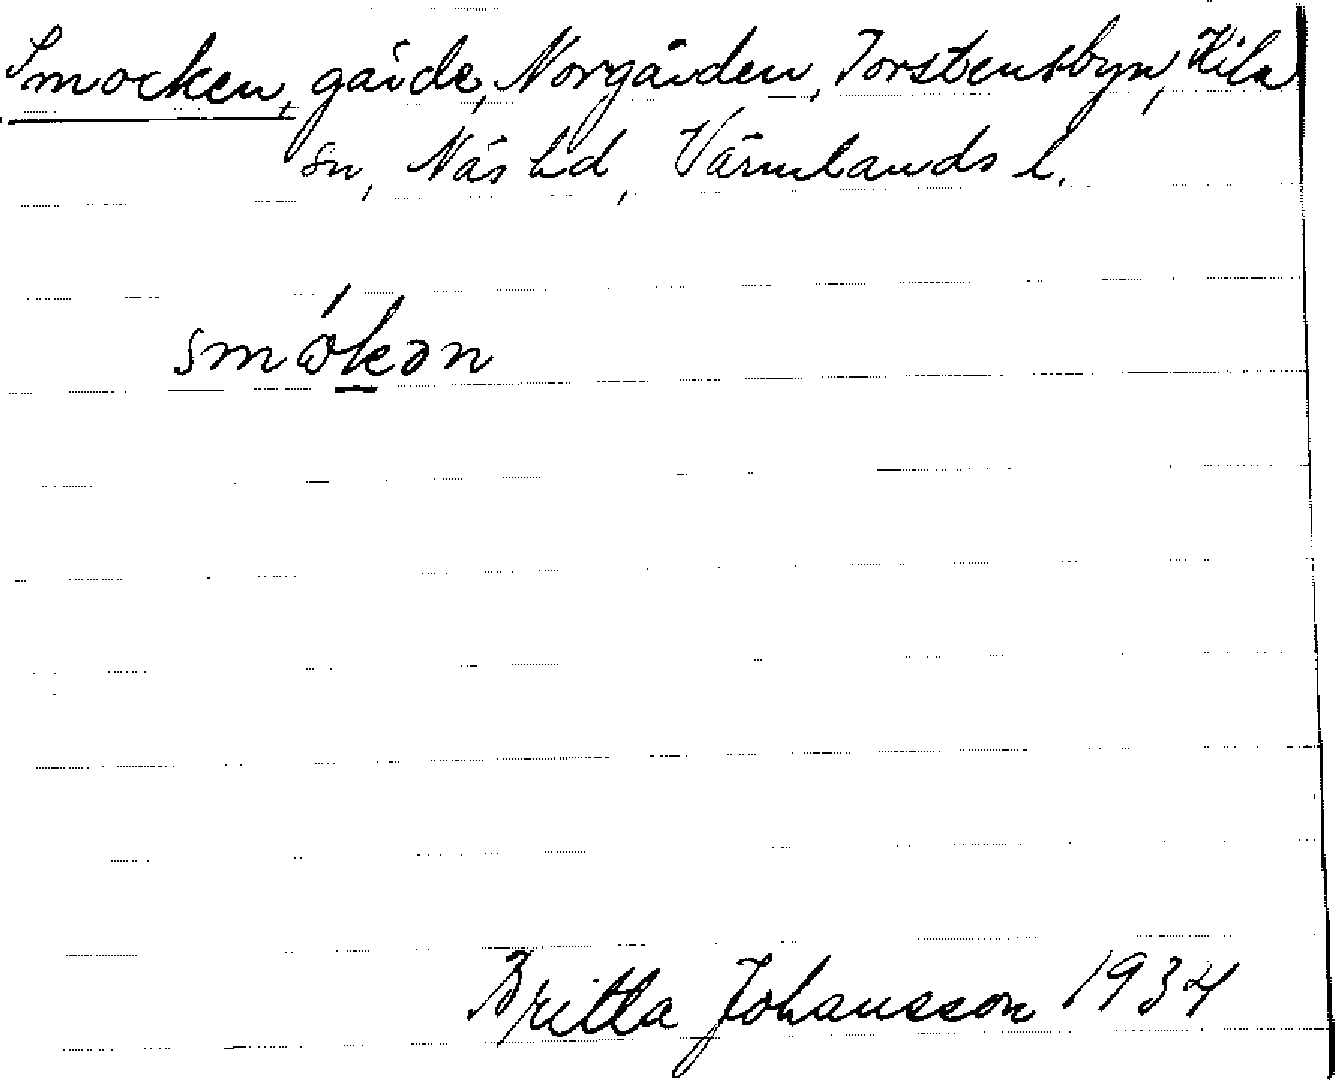 Smocken, gärde, Norgården, Torstensbyn, Kila
sn, Näs hd, Värmlands l.
smǿkən
Britta Johansson 1934